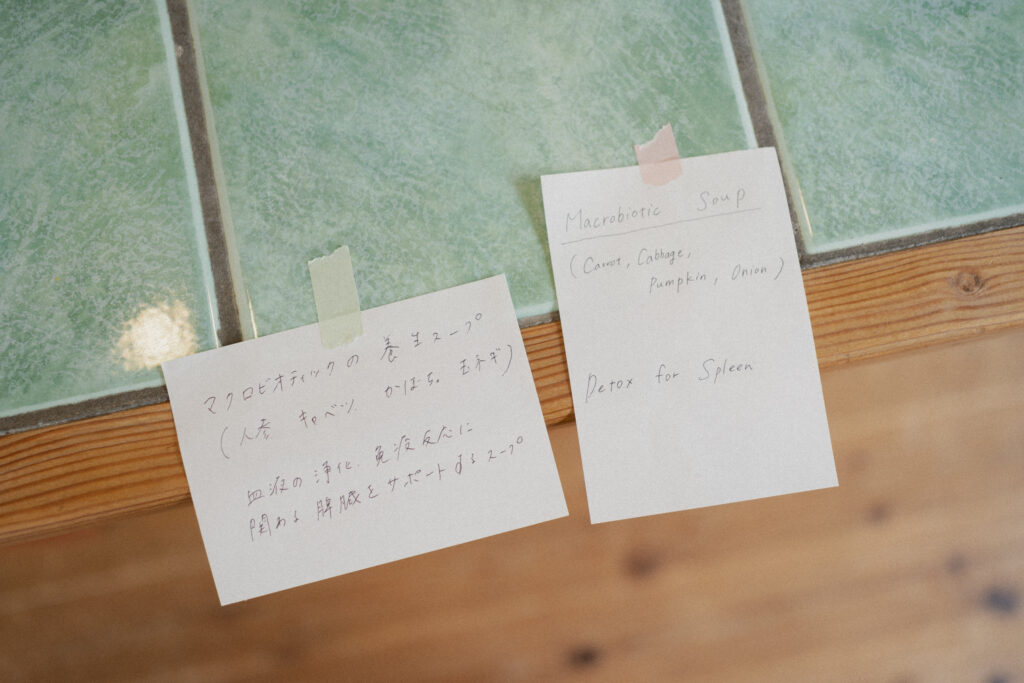 マクロビオティックの 養生スープ
(人参 キャベツ かぼちゃ 玉ネギ)
血液の浄化、免疫反応に
関わる 脾臓をサポートするスープ
Macrobiotic Soup
(Carrot, Cabbage,
Pumpkin, Onion)
Detox for Spleen